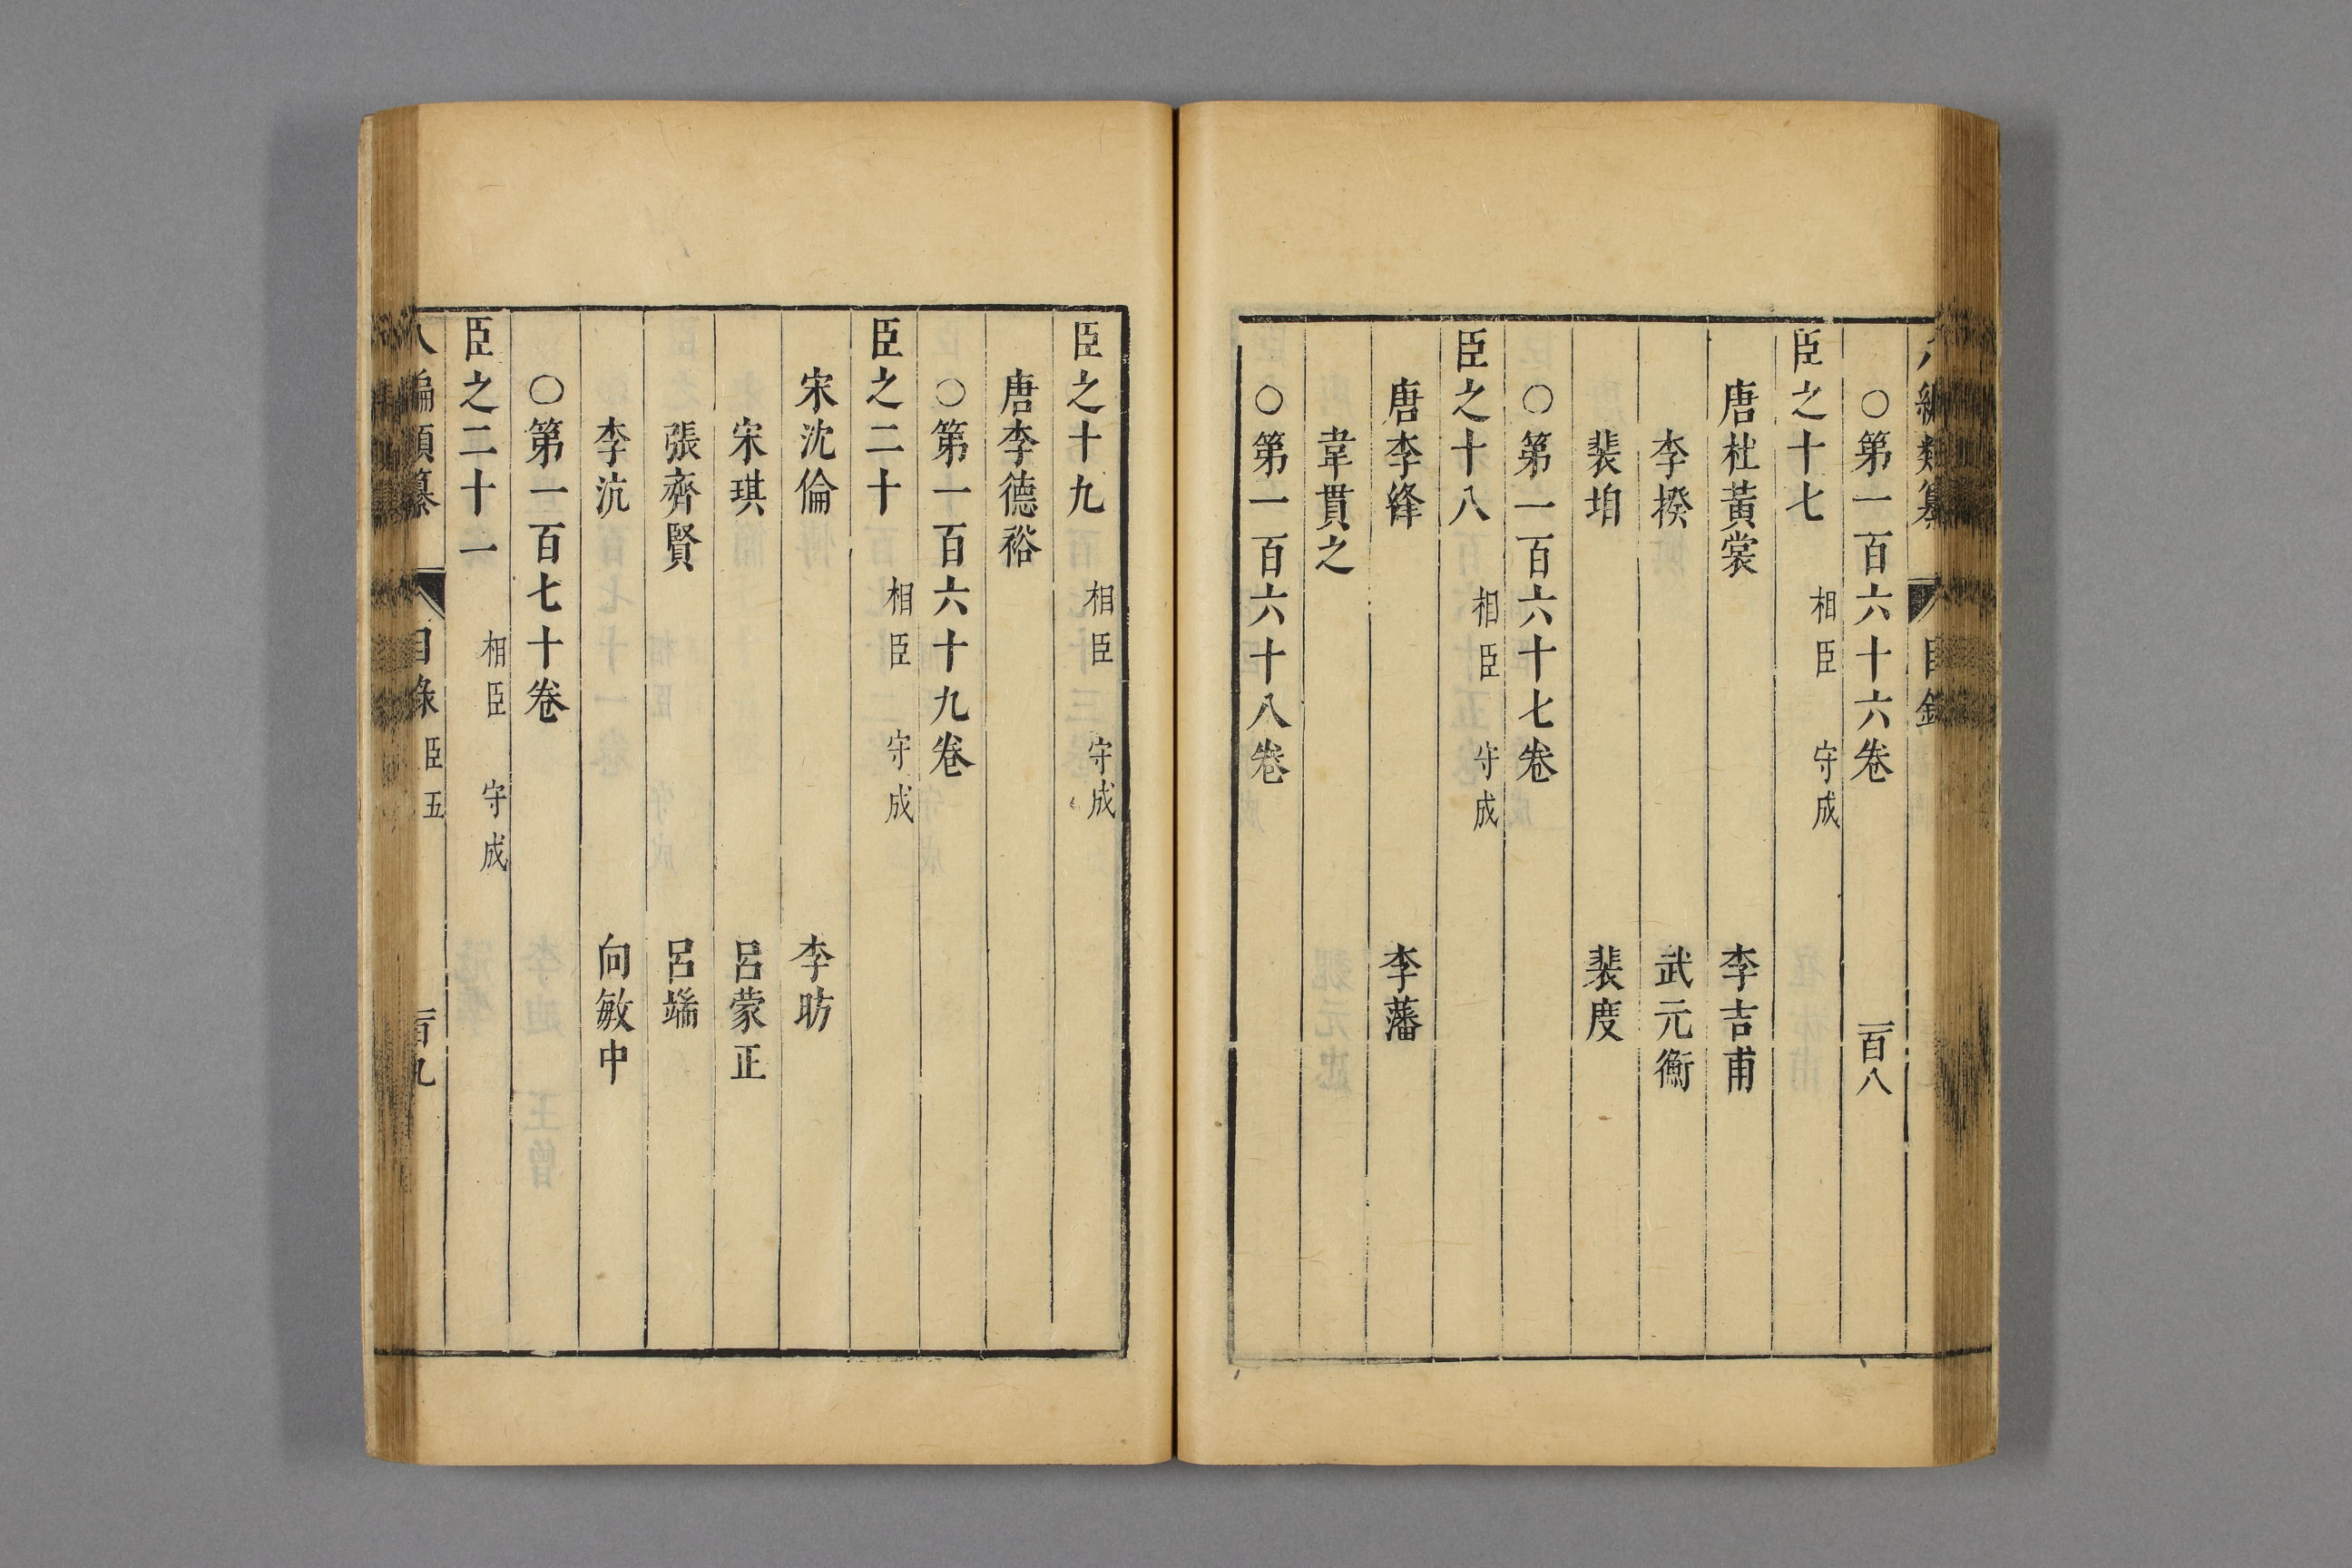 八編類纂 目錄 一百八
○第一百六十六卷
臣之十七 相臣 守成
唐杜黃裳 李吉甫
李揆 武元衡
裴垍 裴度
○第一百六十七卷
臣之十八 相臣 守成
唐李絳 李藩
韋貫之
○第一百六十八卷
臣之十九 相臣 守成
唐李德裕
○第一百六十九卷
臣之二十 相臣 守成
宋沈倫 李昉
宋琪 呂蒙正
張齊賢 呂端
李沆 向敏中
○第一百七十卷
臣之二十一 相臣 守成
八編類纂 目錄 臣五 一百九